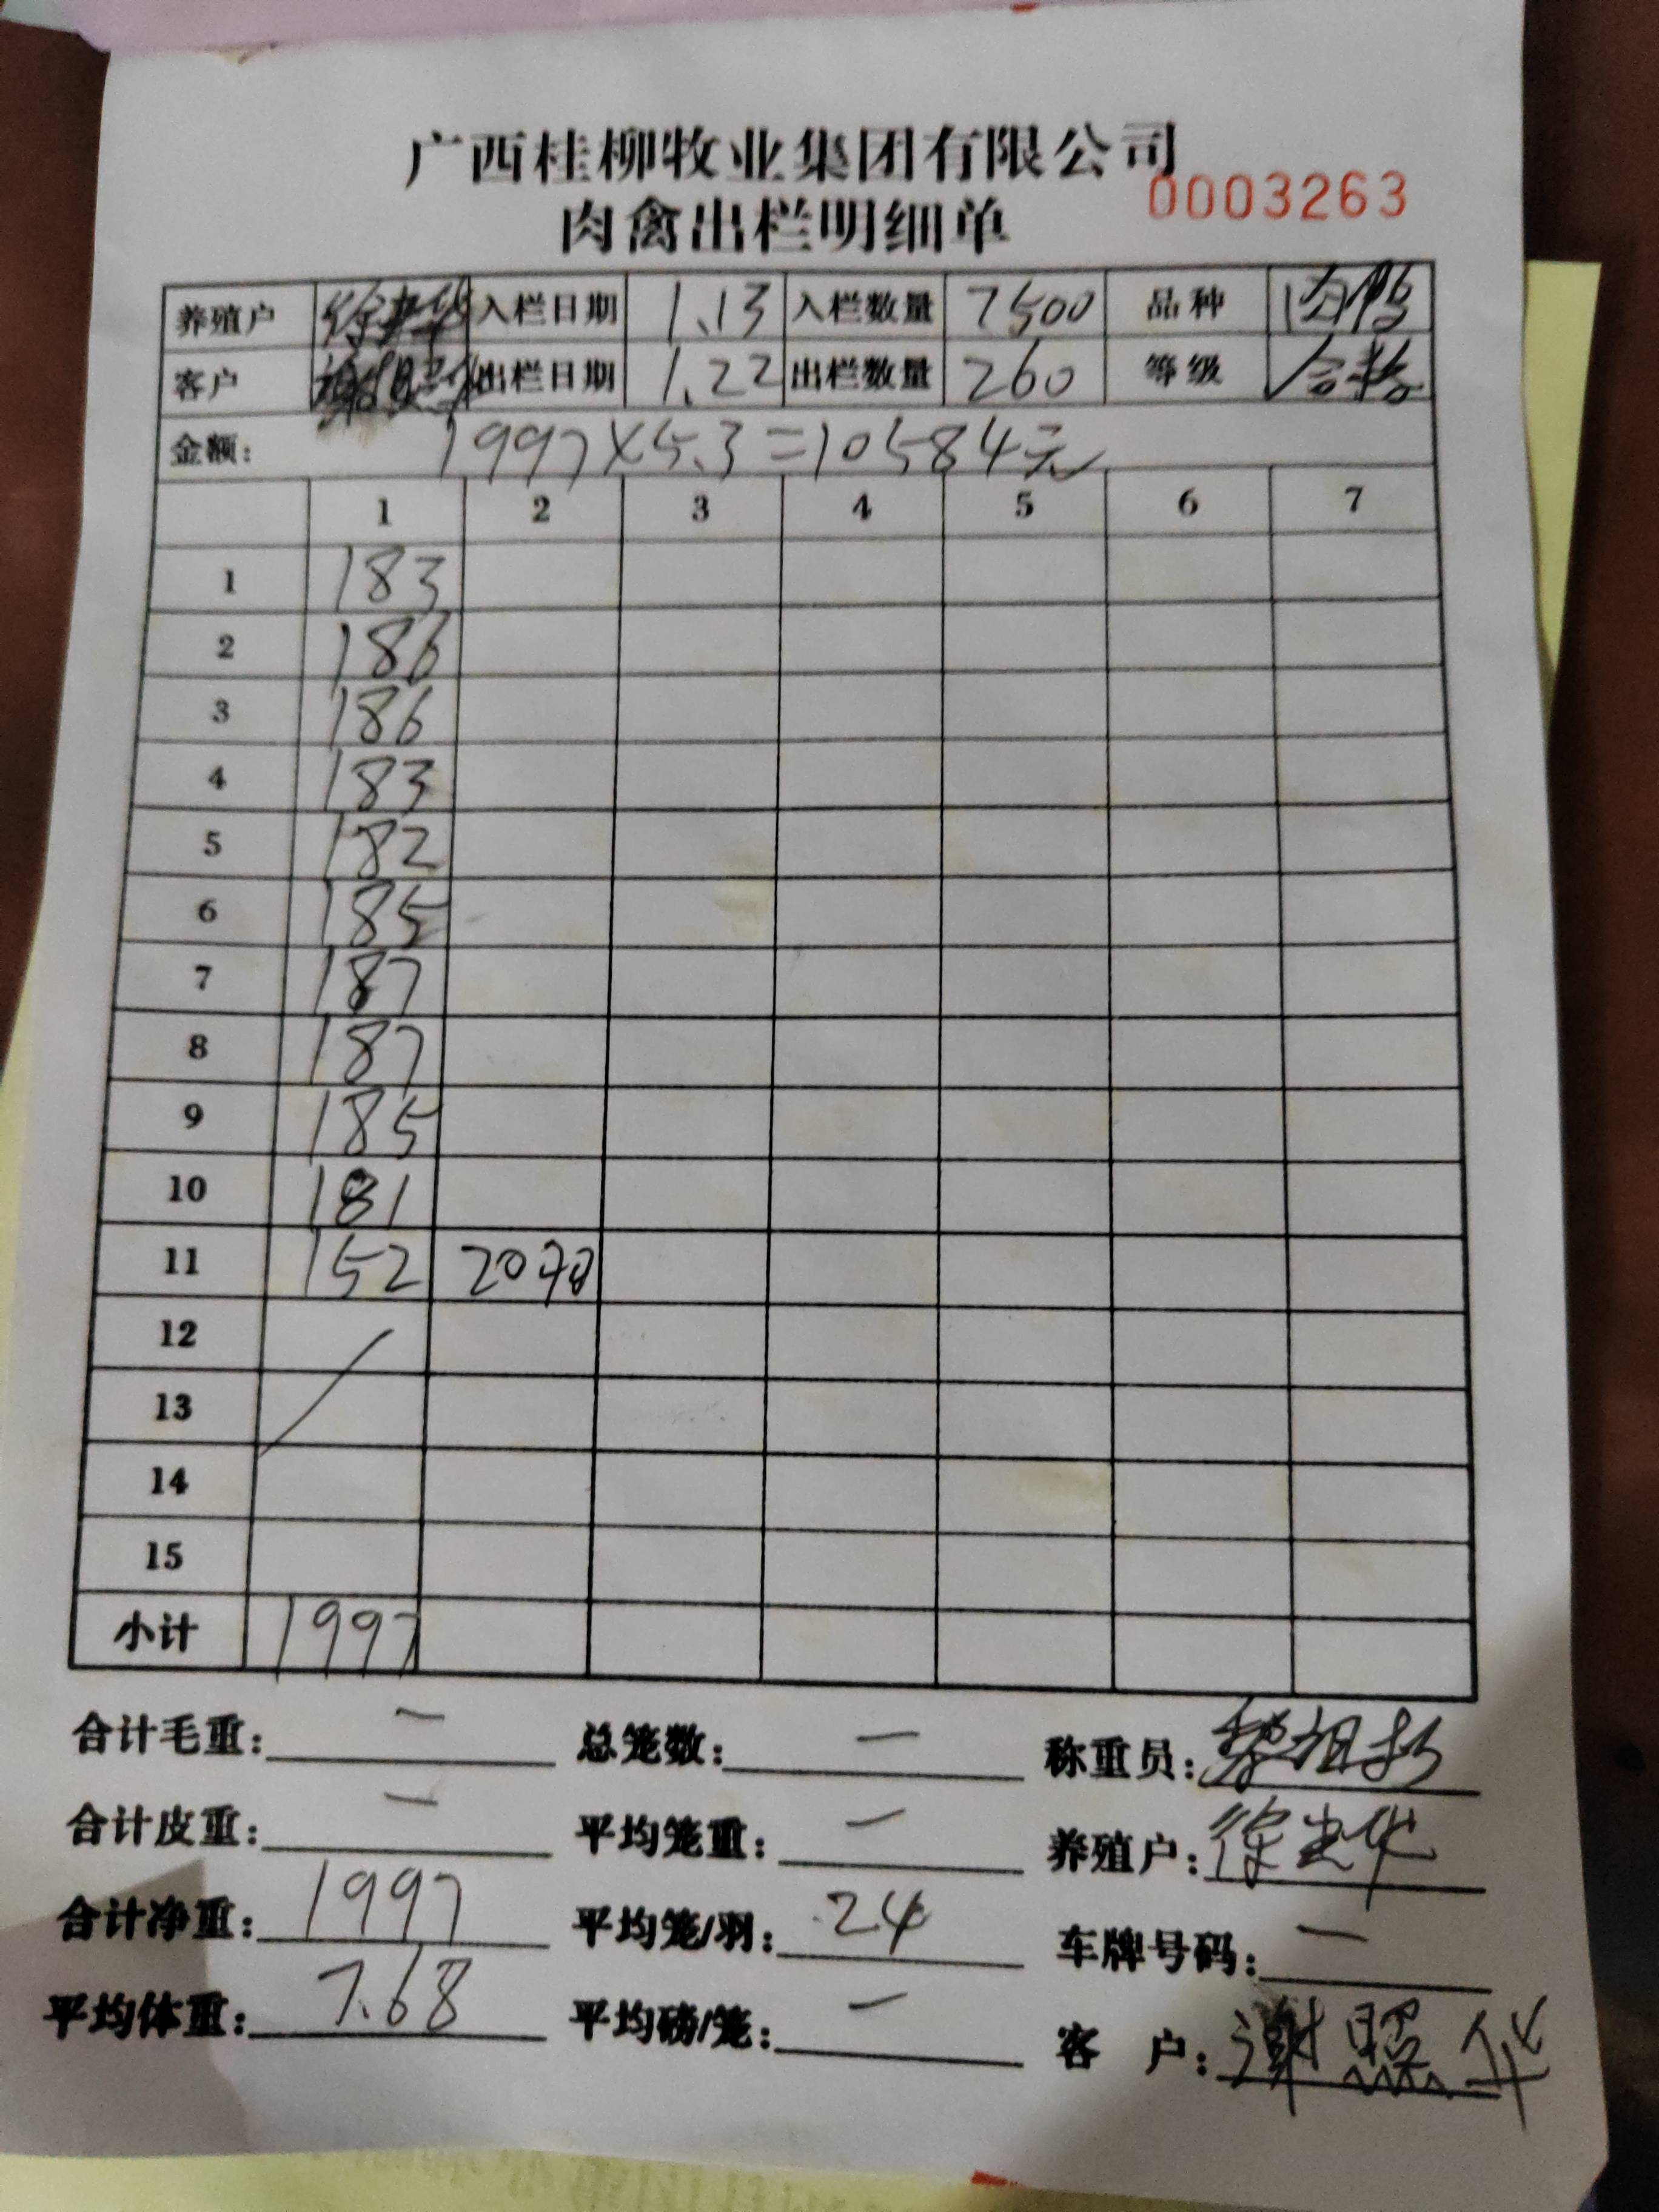 广西桂柳牧业集团有限公司
0003263
肉禽出栏明细单
养殖户 入栏日期 1.13 入栏数量 7500 品种 肉鸭
客户 出栏日期 1.22 出栏数量 260 等级 合格
金额: 1997×5.3=10584元
1 2 3 4 5 6 7
1 183
2 186
3 186
4 183
5 182
6 185
7 187
8 187
9 185
10 181
11 152
12
13
14
15
小计 1997
合计毛重: — 总笼数: — 称重员:
合计皮重: — 平均笼重: — 养殖户:
合计净重: 1997 平均笼/羽: 24 车牌号码: —
平均体重: 7.68 平均磅/笼: — 客 户: 谢照华